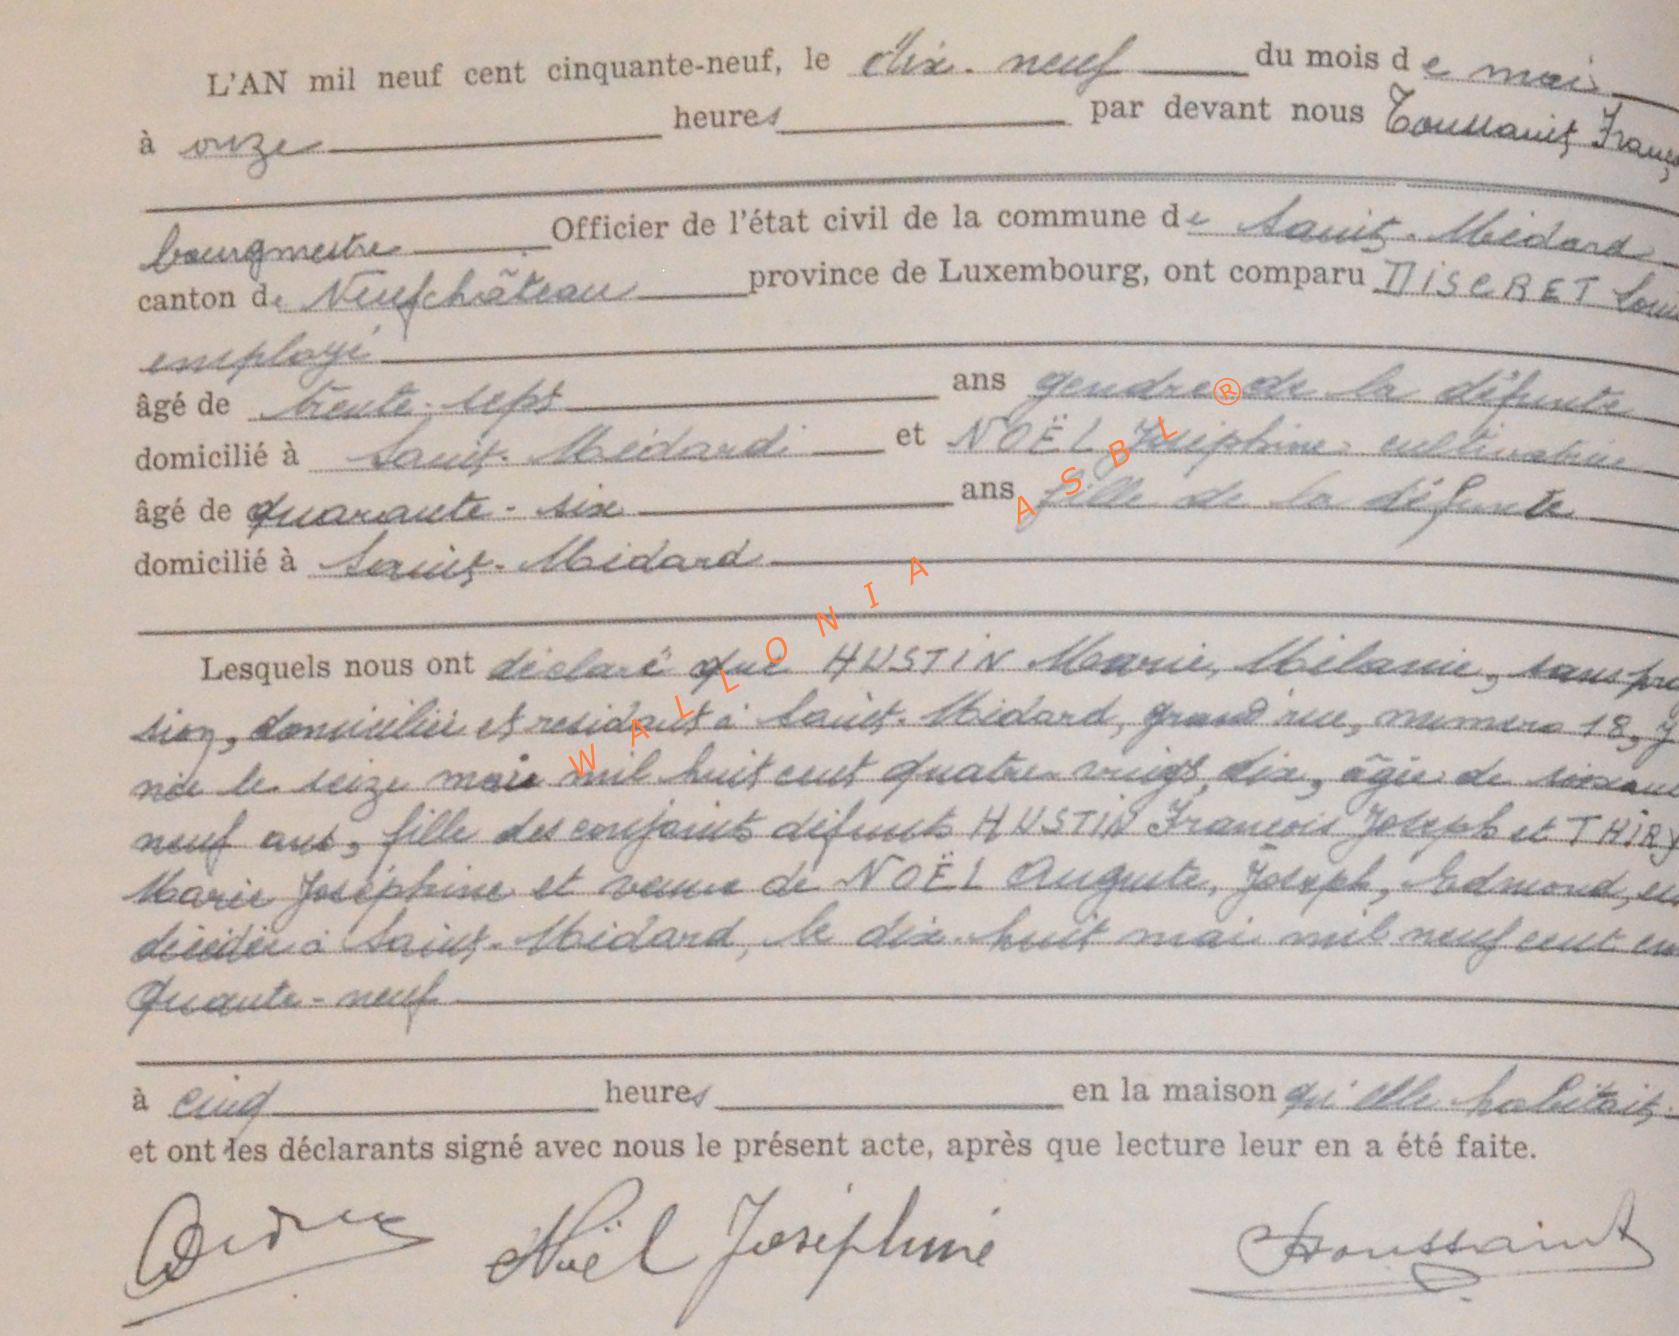 L'AN mil neuf cent cinquante-neuf, le dix-neuf du mois de mai
à onze heures par devant nous Toussaint, Franç
bourgmestre Officier de l'état civil de la commune de Saint-Médard
canton de Neufchâteau province de Luxembourg, ont comparu DISCRET Loui
employé
âgé de trente-sept ans gendre de la défunte
domicilié à Saint-Médard et NOËL Joséphine cultivatrice
âgé de quarante-six ans fille de la défunte
domicilié à Saint-Médard
Lesquels nous ont déclaré que HUSTIN Marie, Mélanie, sans pro
sion, domiciliée et résidant à Saint-Médard, grand'rue, numéro 18, y
née le seize mai mil huit cent quatre vingt dix, âgée de soixant
neuf ans, fille des conjoints défunts HUSTIN François Joseph et THIRY
Marie Joséphine et veuve de NOËL Auguste, Joseph, Edmond, est
décédée à Saint-Médard, le dix-huit mai mil neuf cent cin
quante-neuf
à cinq heures en la maison qu'elle habitait
et ont les déclarants signé avec nous le présent acte, après que lecture leur en a été faite.
Noël Joséphine Toussaint
WALLONIA ASBL ®